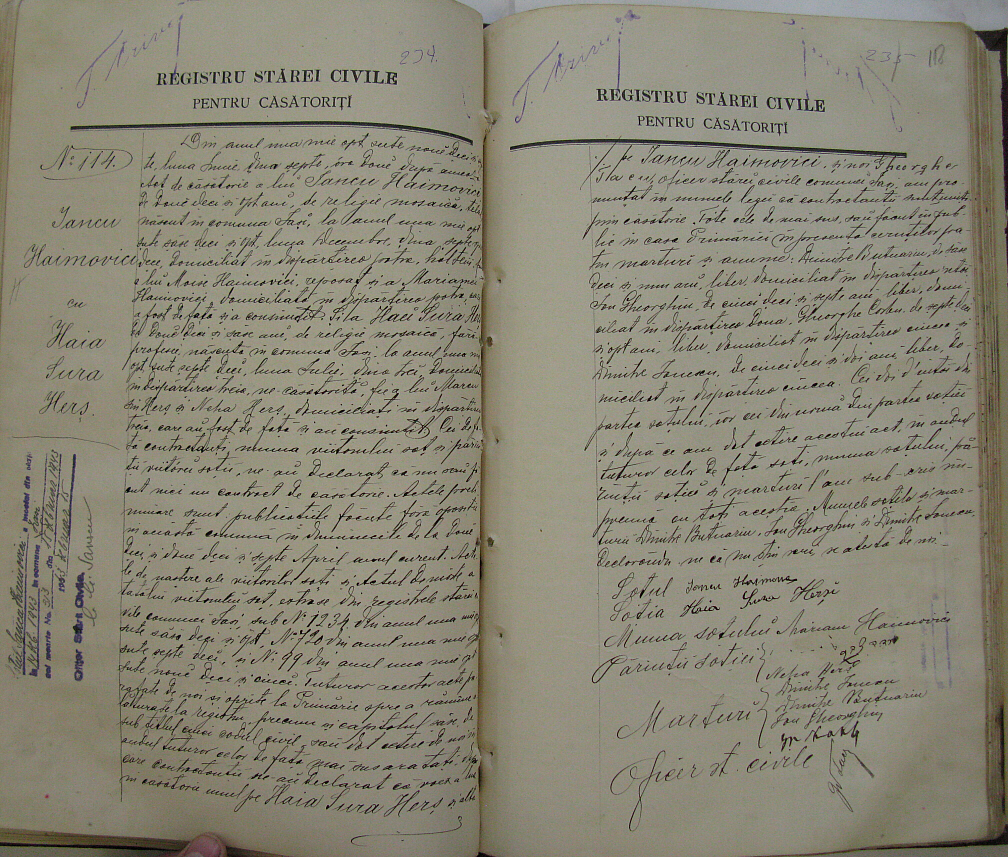 234.
REGISTRU STĂREI CIVILE
PENTRU CĂSĂTORIȚI
No. 114.
Iancu
Haimovici
cu
Haia
Sura
Hers.
Din anul una mie opt sute nouă deci și
te, luna Iunie, dina șepte, ora două după amedi
Act de căsătorie a lui Iancu Haimovici
de două deci și opt ani, de religie mosaică,
născut în comuna Iași, la anul una mie opt
sute șase deci și opt, luna Decembre, dina șepte
dece, domiciliat în despărțirea patra,
a lui Moise Haimovici, reposat și a Mariamei
Haimovici, domiciliată în despărțirea patra, care
a fost de față și a consimțit. Și la Haia Sura Hers
de două deci și șase ani, de religie mosaică, fără
profesie, născută în comuna Iași, la anul una mie
opt sute șepte deci, luna Iulie, dina trei, domiciliată
în despărțirea treia, ne căsătorită, fiică lui Marcu
Hers și Neha Hers, domiciliați în despărțirea
treia, care au fost de față și au consimțit. Cei de fa
ță contractanți, muma viitorului soț și părin
ții viitórei soții, ne au declarat că nu s'au fă
cut nici un contract de căsătorie. Actele preli
minare sunt publicațiile făcute fără oposiție
în acéstă comună în Duminicele de la două
deci și două deci și șepte April anul curent. Acte
le de naștere ale viitorilor soți și Actul de mórte a
tatălui viitorului soț, extrase din registrele stărei ci
vile comunei Iași, sub No 1234 din anul una mie opt
sute șase deci și opt, No 720 din anul una mie opt
sute șepte deci, și No 99 din anul una mie opt
sute nouă deci și cinci. Tuturor acestor acte pa
rafate de noi și oprite la Primărie spre a rămânea
alăturate la registru, precum și capitolul șase, de
sub titlul cinci codul civil, s'au dat cetire de noi în
audul tuturor celor de față mai sus arătați, după
care contractanții ne au declarat că voesc a lua
în căsătorie unul pe Haia Sura Hers și alta
235
REGISTRU STĂREI CIVILE
PENTRU CĂSĂTORIȚI
pe Iancu Haimovici, și noi Gheorghe
oficer stărei civile comunei Iași, am pro
nunțat în numele legii că contractanții sunt uniți
prin căsătorie. Tóte cele de mai sus, s'au făcut în pub
lic în casa Primăriei în presența
tru marturi și anume: Dimitrie Butnariu, de șase
deci și unu ani, liber, domiciliat în despărțirea
Ion Gheorghiu, de cinci deci și șepte ani, liber, domi
ciliat în despărțirea doua, Gheorghe de șepte deci
și opt ani, liber, domiciliat în despărțirea cincea și
Dimitrie Ionescu, de cinci deci și doi ani, liber, do
miciliat în despărțirea cincea. Cei doi d'intâi din
partea soțului, iar cei din urmă din partea soției
și după ce am dat cetire acestui act în audul
tuturor celor de față soți, muma soțului, pă
rinții soției și marturi l'am sub scris îm
preună cu toți aceștia. Numele soților și mar
turii Dimitrie Butnariu, Ion Gheorghiu și Dimitrie Ionescu,
declarându ne că nu știu scrie, se atestă de noi.
Soțul Iancu Haimovici
Soția Haia Sura Herș
Muma soțului Mariam Haimovici
Părinții soției
Neha Herș
Marturi
Dimitrie Ionescu
Dimitrie Butnariu
Ion Gheorghiu
Oficer st. civile
Ofițer Stărei Civile